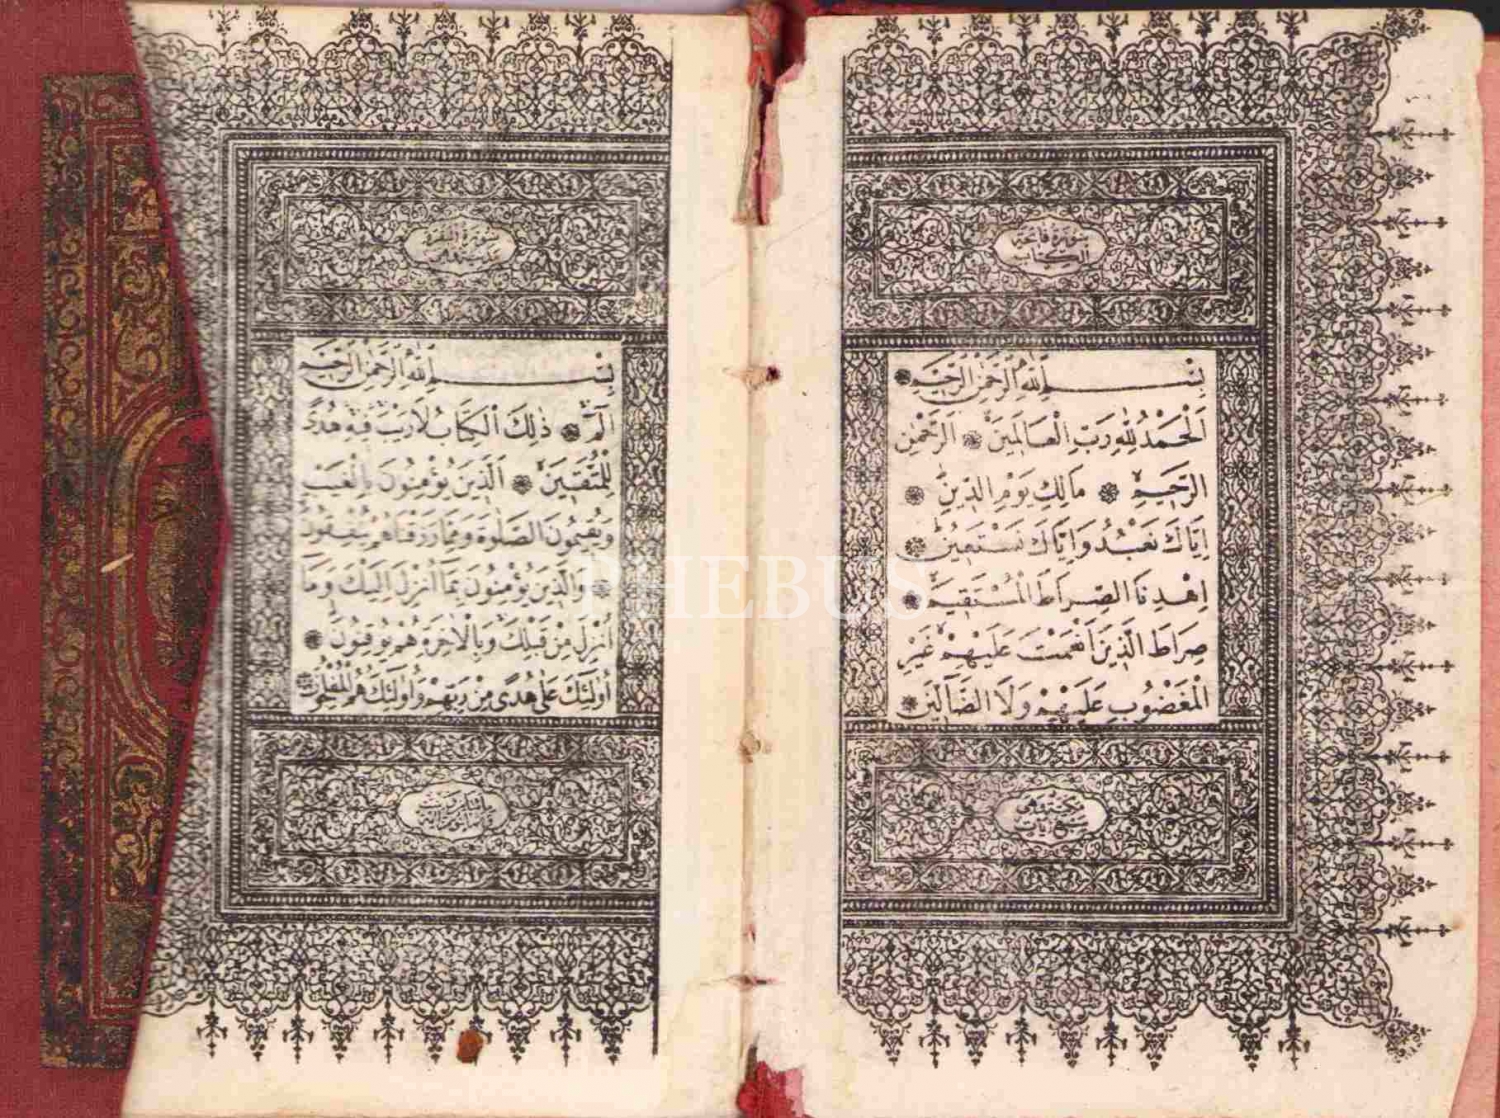 سورة فاتحة
الكتاب
بِسْمِ اللّٰهِ الرَّحْمٰنِ الرَّحٖيمِ
اَلْحَمْدُ لِلّٰهِ رَبِّ الْعَالَمٖينَ ❁ اَلرَّحْمٰنِ
الرَّحٖيمِ ❁ مَالِكِ يَوْمِ الدّٖينِ ❁
اِيَّاكَ نَعْبُدُ وَاِيَّاكَ نَسْتَعٖينُ ❁
اِهْدِنَا الصِّرَاطَ الْمُسْتَقٖيمَ ❁
صِرَاطَ الَّذٖينَ اَنْعَمْتَ عَلَيْهِمْ غَيْرِ
الْمَغْضُوبِ عَلَيْهِمْ وَلَا الضَّالّٖينَ ❁
سورة البقرة
بِسْمِ اللّٰهِ الرَّحْمٰنِ الرَّحٖيمِ
الٓمٓ ❁ ذٰلِكَ الْكِتَابُ لَا رَيْبَ فٖيهِ هُدًى
لِلْمُتَّقٖينَ ❁ اَلَّذٖينَ يُؤْمِنُونَ بِالْغَيْبِ
وَيُقٖيمُونَ الصَّلٰوةَ وَمِمَّا رَزَقْنَاهُمْ يُنْفِقُونَ
❁ وَالَّذٖينَ يُؤْمِنُونَ بِمَا اُنْزِلَ اِلَيْكَ وَمَا
اُنْزِلَ مِنْ قَبْلِكَ وَبِالْاٰخِرَةِ هُمْ يُوقِنُونَ ❁
اُولٰئِكَ عَلٰى هُدًى مِنْ رَبِّهِمْ وَاُولٰئِكَ هُمُ الْمُفْلِحُونَ ❁
PHEBUS